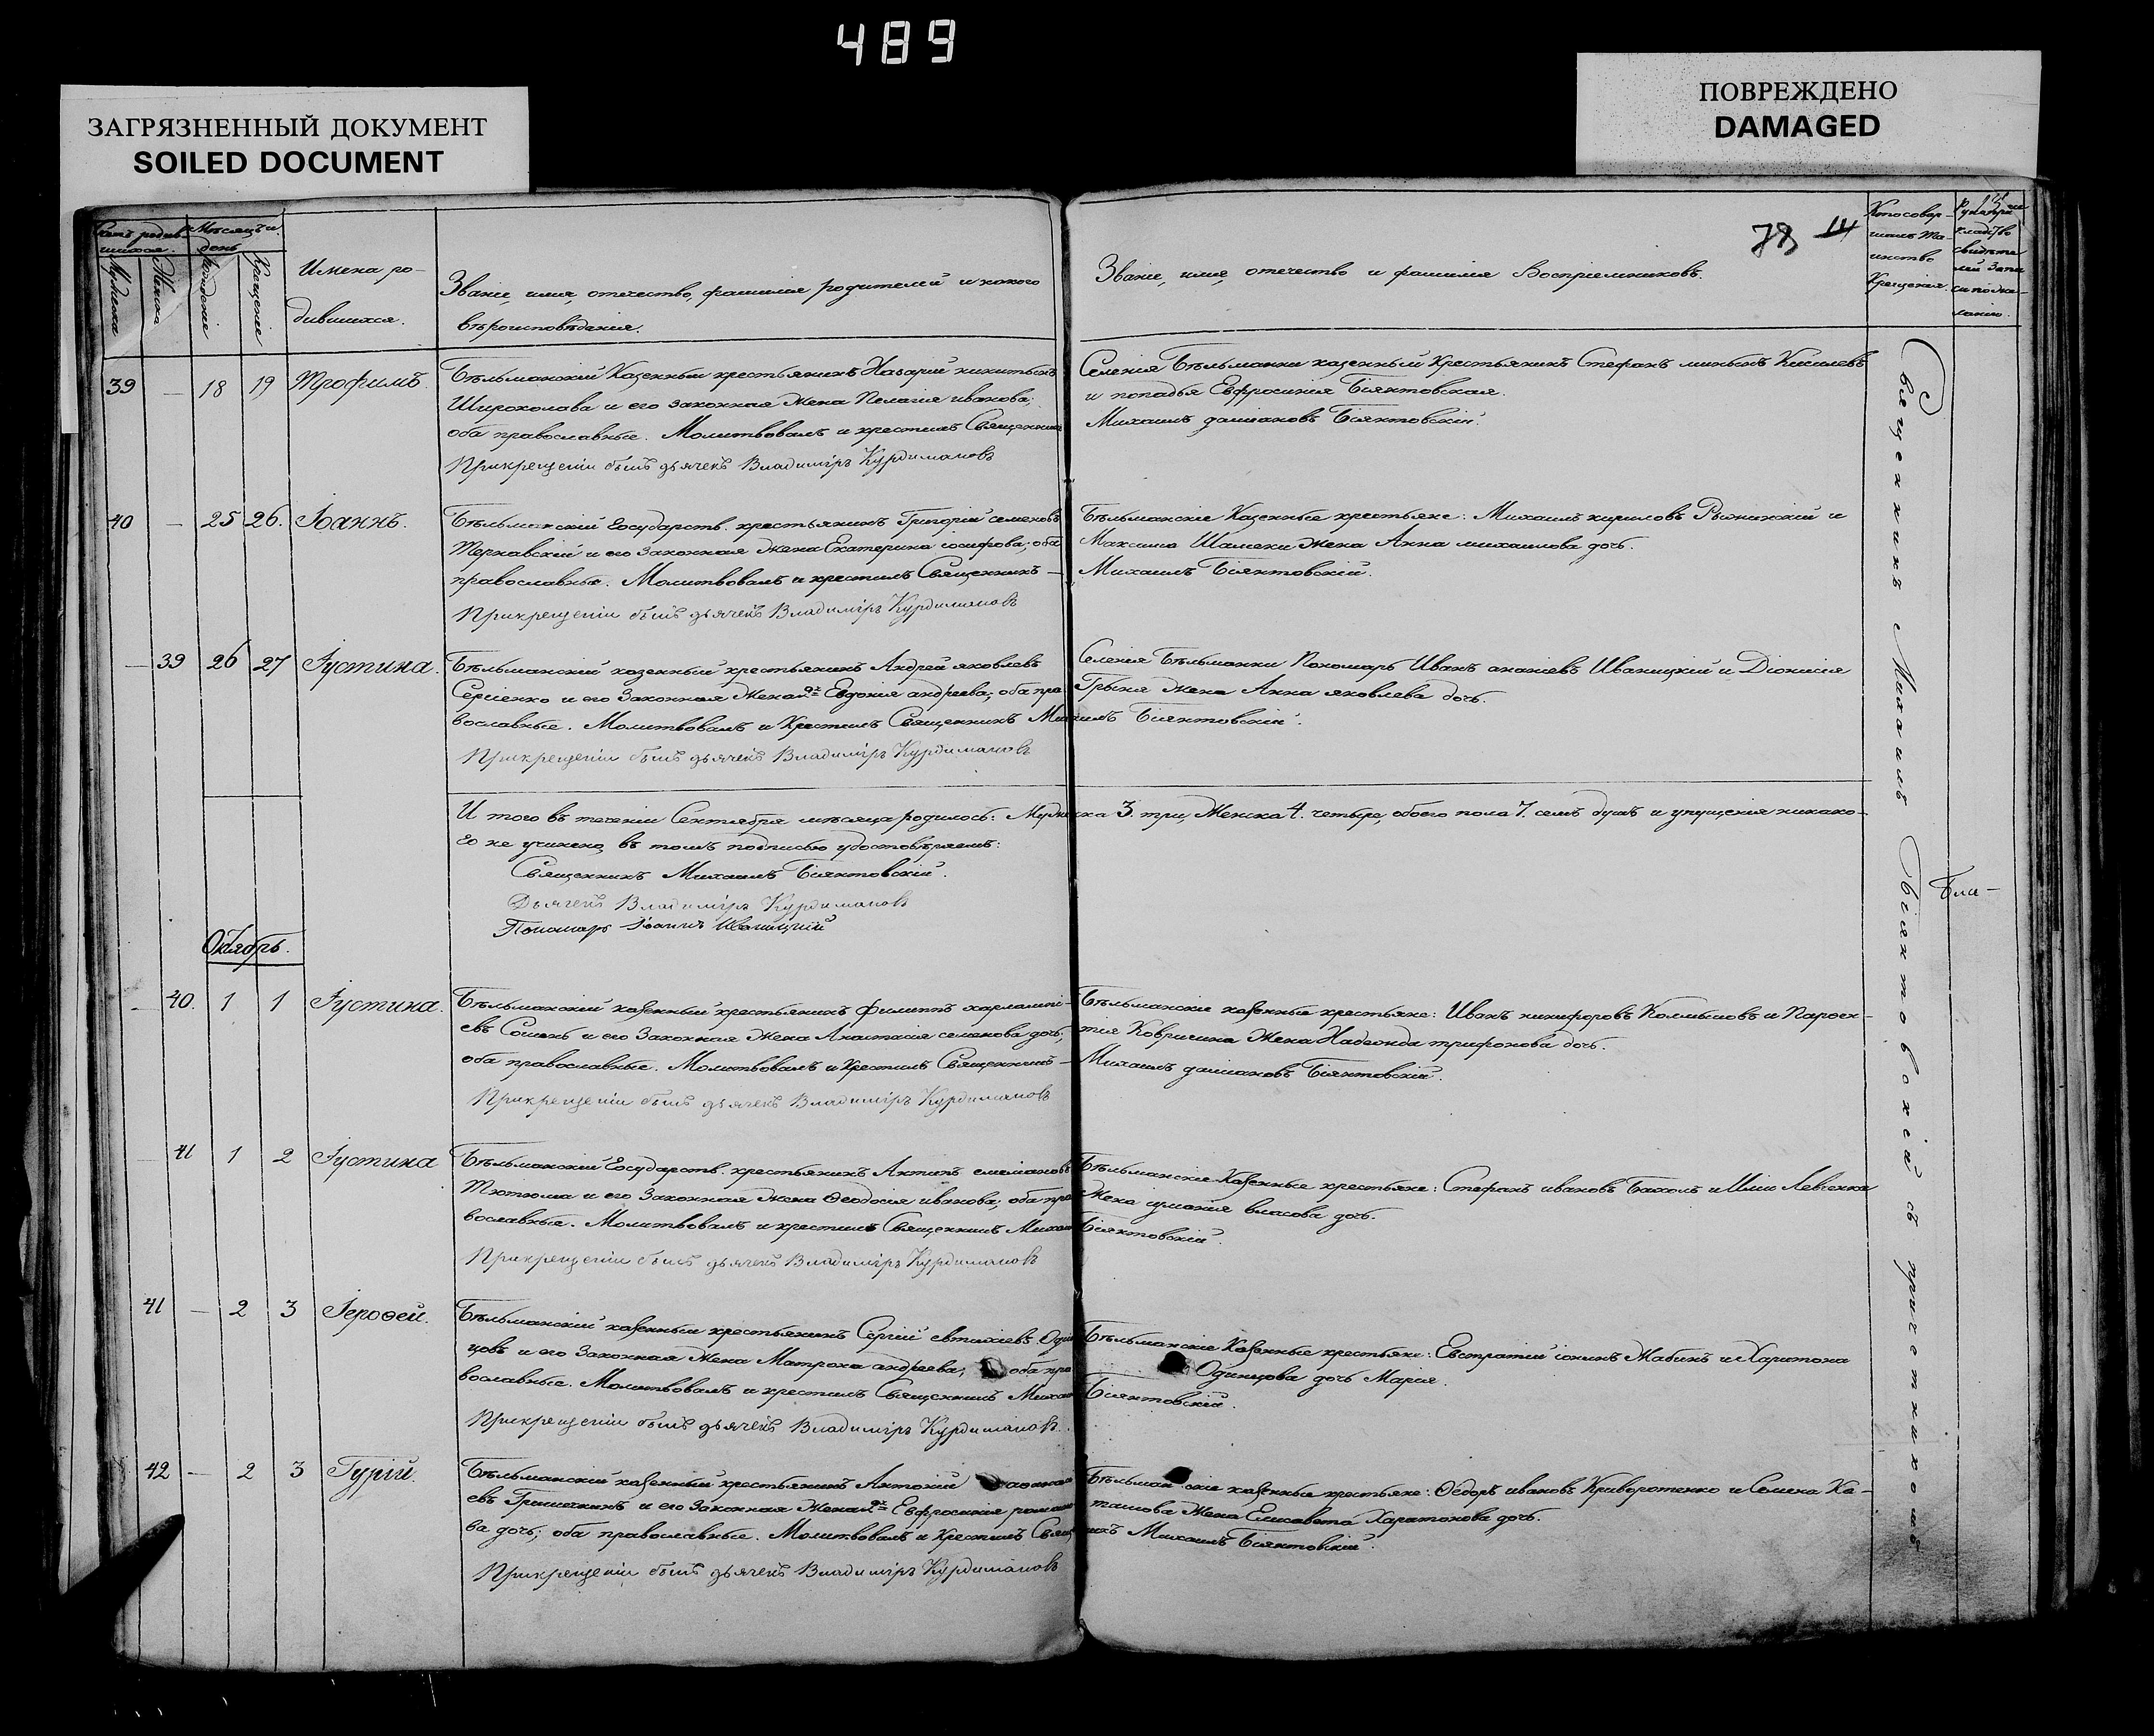 489
ЗАГРЯЗНЕННЫЙ ДОКУМЕНТ
SOILED DOCUMENT
ПОВРЕЖДЕНО
DAMAGED
78
Мѣсяцъ и
день
Мужеска
Женска
рожденіе
Крещеніе
Имена ро-
дившихся.
Званіе, имя, отечество, фамилія родителей и какого
вѣроисповѣданія.
Званіе, имя, отечество и фамилія Воспріемниковъ.
Кто совер-
шалъ Та-
инство
Крещенія.
39 — 18 19 Трофимъ.
Бѣльманскій Казенный крестьянинъ Назарій никитинъ
Широколава и его законная жена Пелагія иванова;
оба православные. Молитвовалъ и крестилъ Священникъ
Прикрещеніи былъ дьячекъ Владиміръ Курдимановъ
Селенія Бѣльманки казенный Крестьянинъ Стефанъ мининъ Киселевъ
и попадья Евфросинія Біянтовская.
Михаилъ даміановъ Біянтовскій.
40 — 25 26. Іоаннъ.
Бѣльманскій Государств. крестьянинъ Григорій семеновъ
Тернавскій и его Законная жена Екатерина іосифова; оба
православные. Молитвовалъ и крестилъ Священникъ —
Прикрещеніи былъ дьячекъ Владиміръ Курдимановъ
Бѣльманскіе Казенные крестьяне: Михаилъ кириловъ Рыжинскій и
Максима Шамеки жена Анна михаилова дочь.
Михаилъ Біянтовскій.
— 39 26 27 Іустина.
Бѣльманскій казенный крестьянинъ Андрей яковлевъ
Сергіенко и его Законная Жена Евдокія андреева; оба пра
вославные. Молитвовалъ и Крестилъ Священникъ Михаилъ Біянтовскій.
Прикрещеніи былъ дьячекъ Владиміръ Курдимановъ
Селенія Бѣльманки Пономарь Иванъ ананіевъ Иваницкій и Діонисія
Грыня жена Анна яковлева дочь.
И того въ теченіи Сентября мѣсяца родилось: Мужеска 3. три, Женска 4. четыре, обоего пола 7. семь душъ и упущенія никако-
го не учинено, въ томъ подписью удостовѣряемъ:
Священникъ Михаилъ Біянтовскій.
Дьячекъ Владиміръ Курдимановъ
Пономарь Іоаннъ Иваницкій
Октябрь.
— 40. 1 1 Іустина.
Бѣльманскій казенный крестьянинъ Филиппъ харлампі-
евъ Сошенъ и его Законная жена Анастасія семенова дочь;
оба православные. Молитвовалъ и Крестилъ Священникъ —
Прикрещеніи былъ дьячекъ Владиміръ Курдимановъ
Бѣльманскіе казенные крестьяне: Иванъ никифоровъ Колмыковъ и Пароен-
тія Ковригина жена Надежда трифонова дочь.
Михаилъ даміановъ Біянтовскій.
— 41 1 2 Іустина
Бѣльманскій Государств. крестьянинъ Антипъ емеліановъ
Тютюма и его Законная жена Ѳеодосія иванова; оба пра
вославные. Молитвовалъ и крестилъ Священникъ Михаилъ
Прикрещеніи былъ дьячекъ Владиміръ Курдимановъ
Бѣльманскіе Казенные крестьяне: Стефанъ ивановъ Бахолъ и Иліи Левченка
Жена іуманія власова дочь.
Біянтовскій.
41 — 2 3 Іероѳей.
Бѣльманскій казенный крестьянинъ Сергій евтихіевъ Один
цовъ и его Законная жена Матрона андреева; оба пра
вославные. Молитвовалъ и крестилъ Священникъ Михаилъ
Прикрещеніи былъ дьячекъ Владиміръ Курдимановъ.
Бѣльманскіе Казенные крестьяне: Евстратій іонинъ Жабинъ и Харитона
Одинцова дочь Марія.
Біянтовскій.
42 — 2 3 Гурій.
Бѣльманскій казенный крестьянинъ Антоній
евъ Гришечкинъ и его Законная жена Евфросинія романо
ва дочь; оба православные. Молитвовалъ и Крестилъ Священ
Прикрещеніи былъ дьячекъ Владиміръ Курдимановъ
Бѣльманскіе казенные крестьяне: Ѳедоръ ивановъ Криворотенко и Семена Ка-
ташова жена Елисавета Харитонова дочь.
никъ Михаилъ Біянтовскій.
Священникъ Михаилъ Біянтовскій съ причетникомъ
Бла-